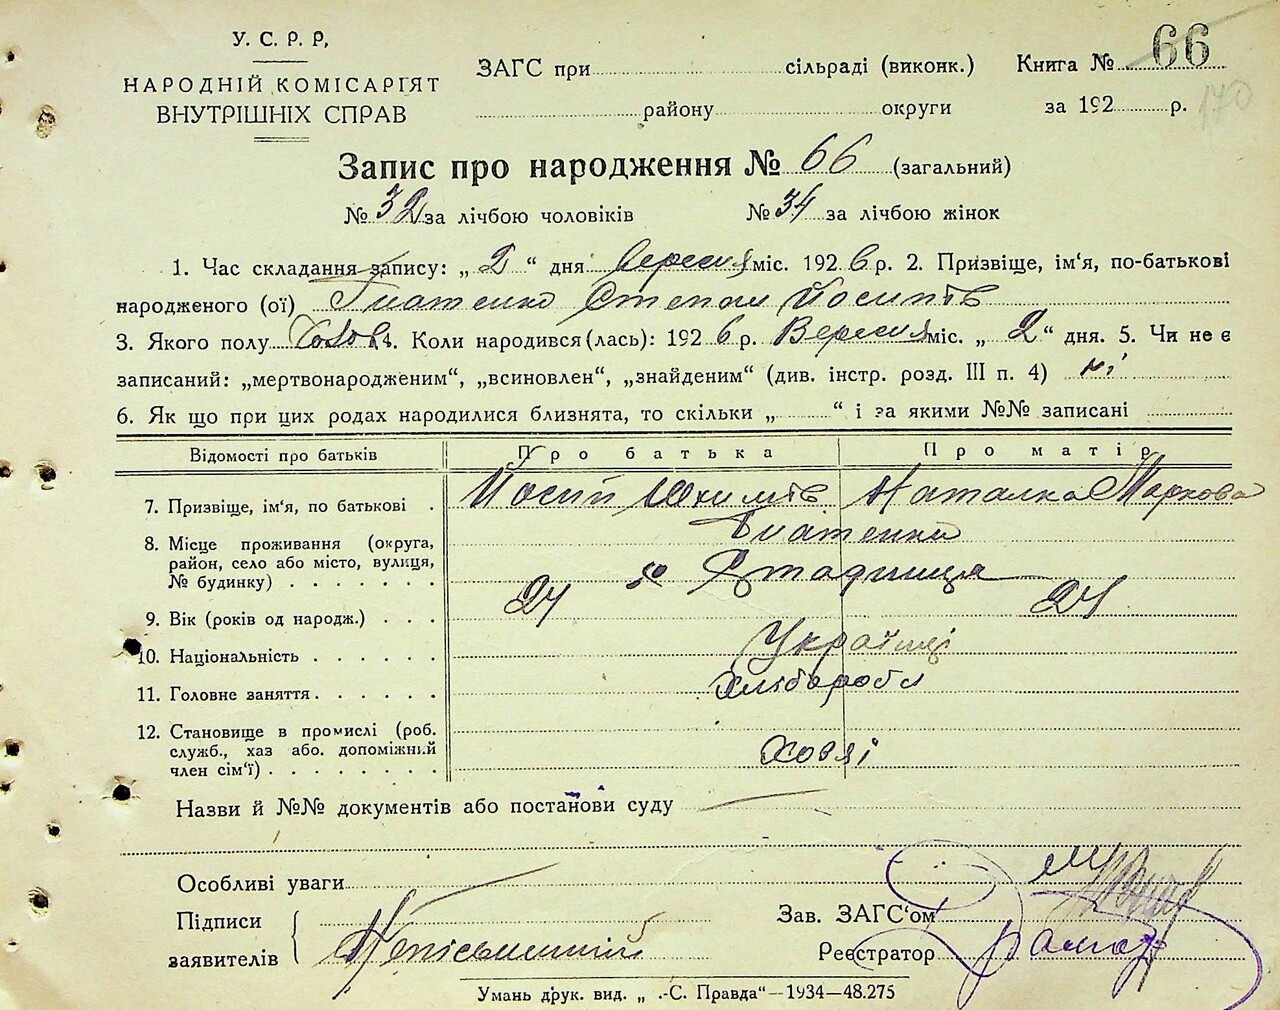 У. С. Р. Р,
НАРОДНІЙ КОМІСАРІЯТ
ВНУТРІШНІХ СПРАВ
ЗАГС при сільраді (виконк.) Книга № 66
району округи за 192 р. 170
Запис про народження № 66 (загальний)
№ 32 за лічбою чоловіків № 34 за лічбою жінок
1. Час складання запису: „ 2 “ дня вересня міс. 1926 р. 2. Призвіще, ім'я, по-батькові
народженого (ої) Гнатенко Степан Йосипів
3. Якого полу 4. Коли народився (лась): 1926 р. Вересня міс. „ 2 “ дня. 5. Чи не є
записаний: „мертвонародженим“, „всиновлен“, „знайденим“ (див. інстр. розд. III п. 4) ні
6. Як що при цих родах народилися близнята, то скільки „ “ і за якими №№ записані
Відомості про батьків Про батька Про матір
7. Призвіще, ім'я, по батькові Йосип Наталка Маркова
Гнатенки
8. Місце проживання (округа,
район, село або місто, вулиця,
№ будинку) Стадниця
9. Вік (років од народж.) 24 24
10. Національність Українці
11. Головне заняття Хлібороби
12. Становище в промислі (роб.
служб., хаз або. допоміжний
член сім'ї) Хозяі
Назви й №№ документів або постанови суду
Особливі уваги
Підписи
заявителів Неписьменний
Зав. ЗАГС'ом
Реєстратор
Умань друк. вид. „ -С. Правда“—1934—48.275